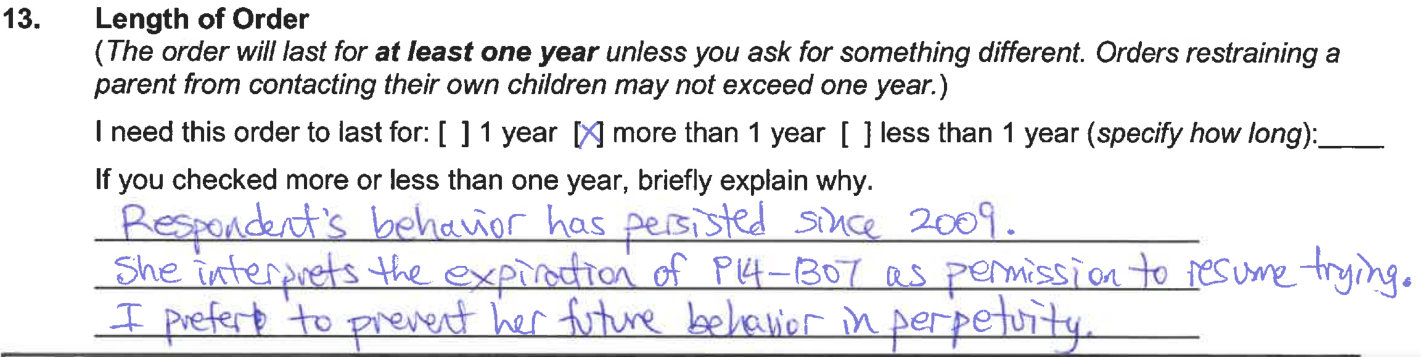 13. Length of Order
(The order will last for at least one year unless you ask for something different. Orders restraining a
parent from contacting their own children may not exceed one year.)
I need this order to last for: [ ] 1 year [X] more than 1 year [ ] less than 1 year (specify how long):____
If you checked more or less than one year, briefly explain why.
Respondent's behavior has persisted since 2009.
She interprets the expiration of P14-1307 as permission to resume trying.
I prefer to prevent her future behavior in perpetuity.